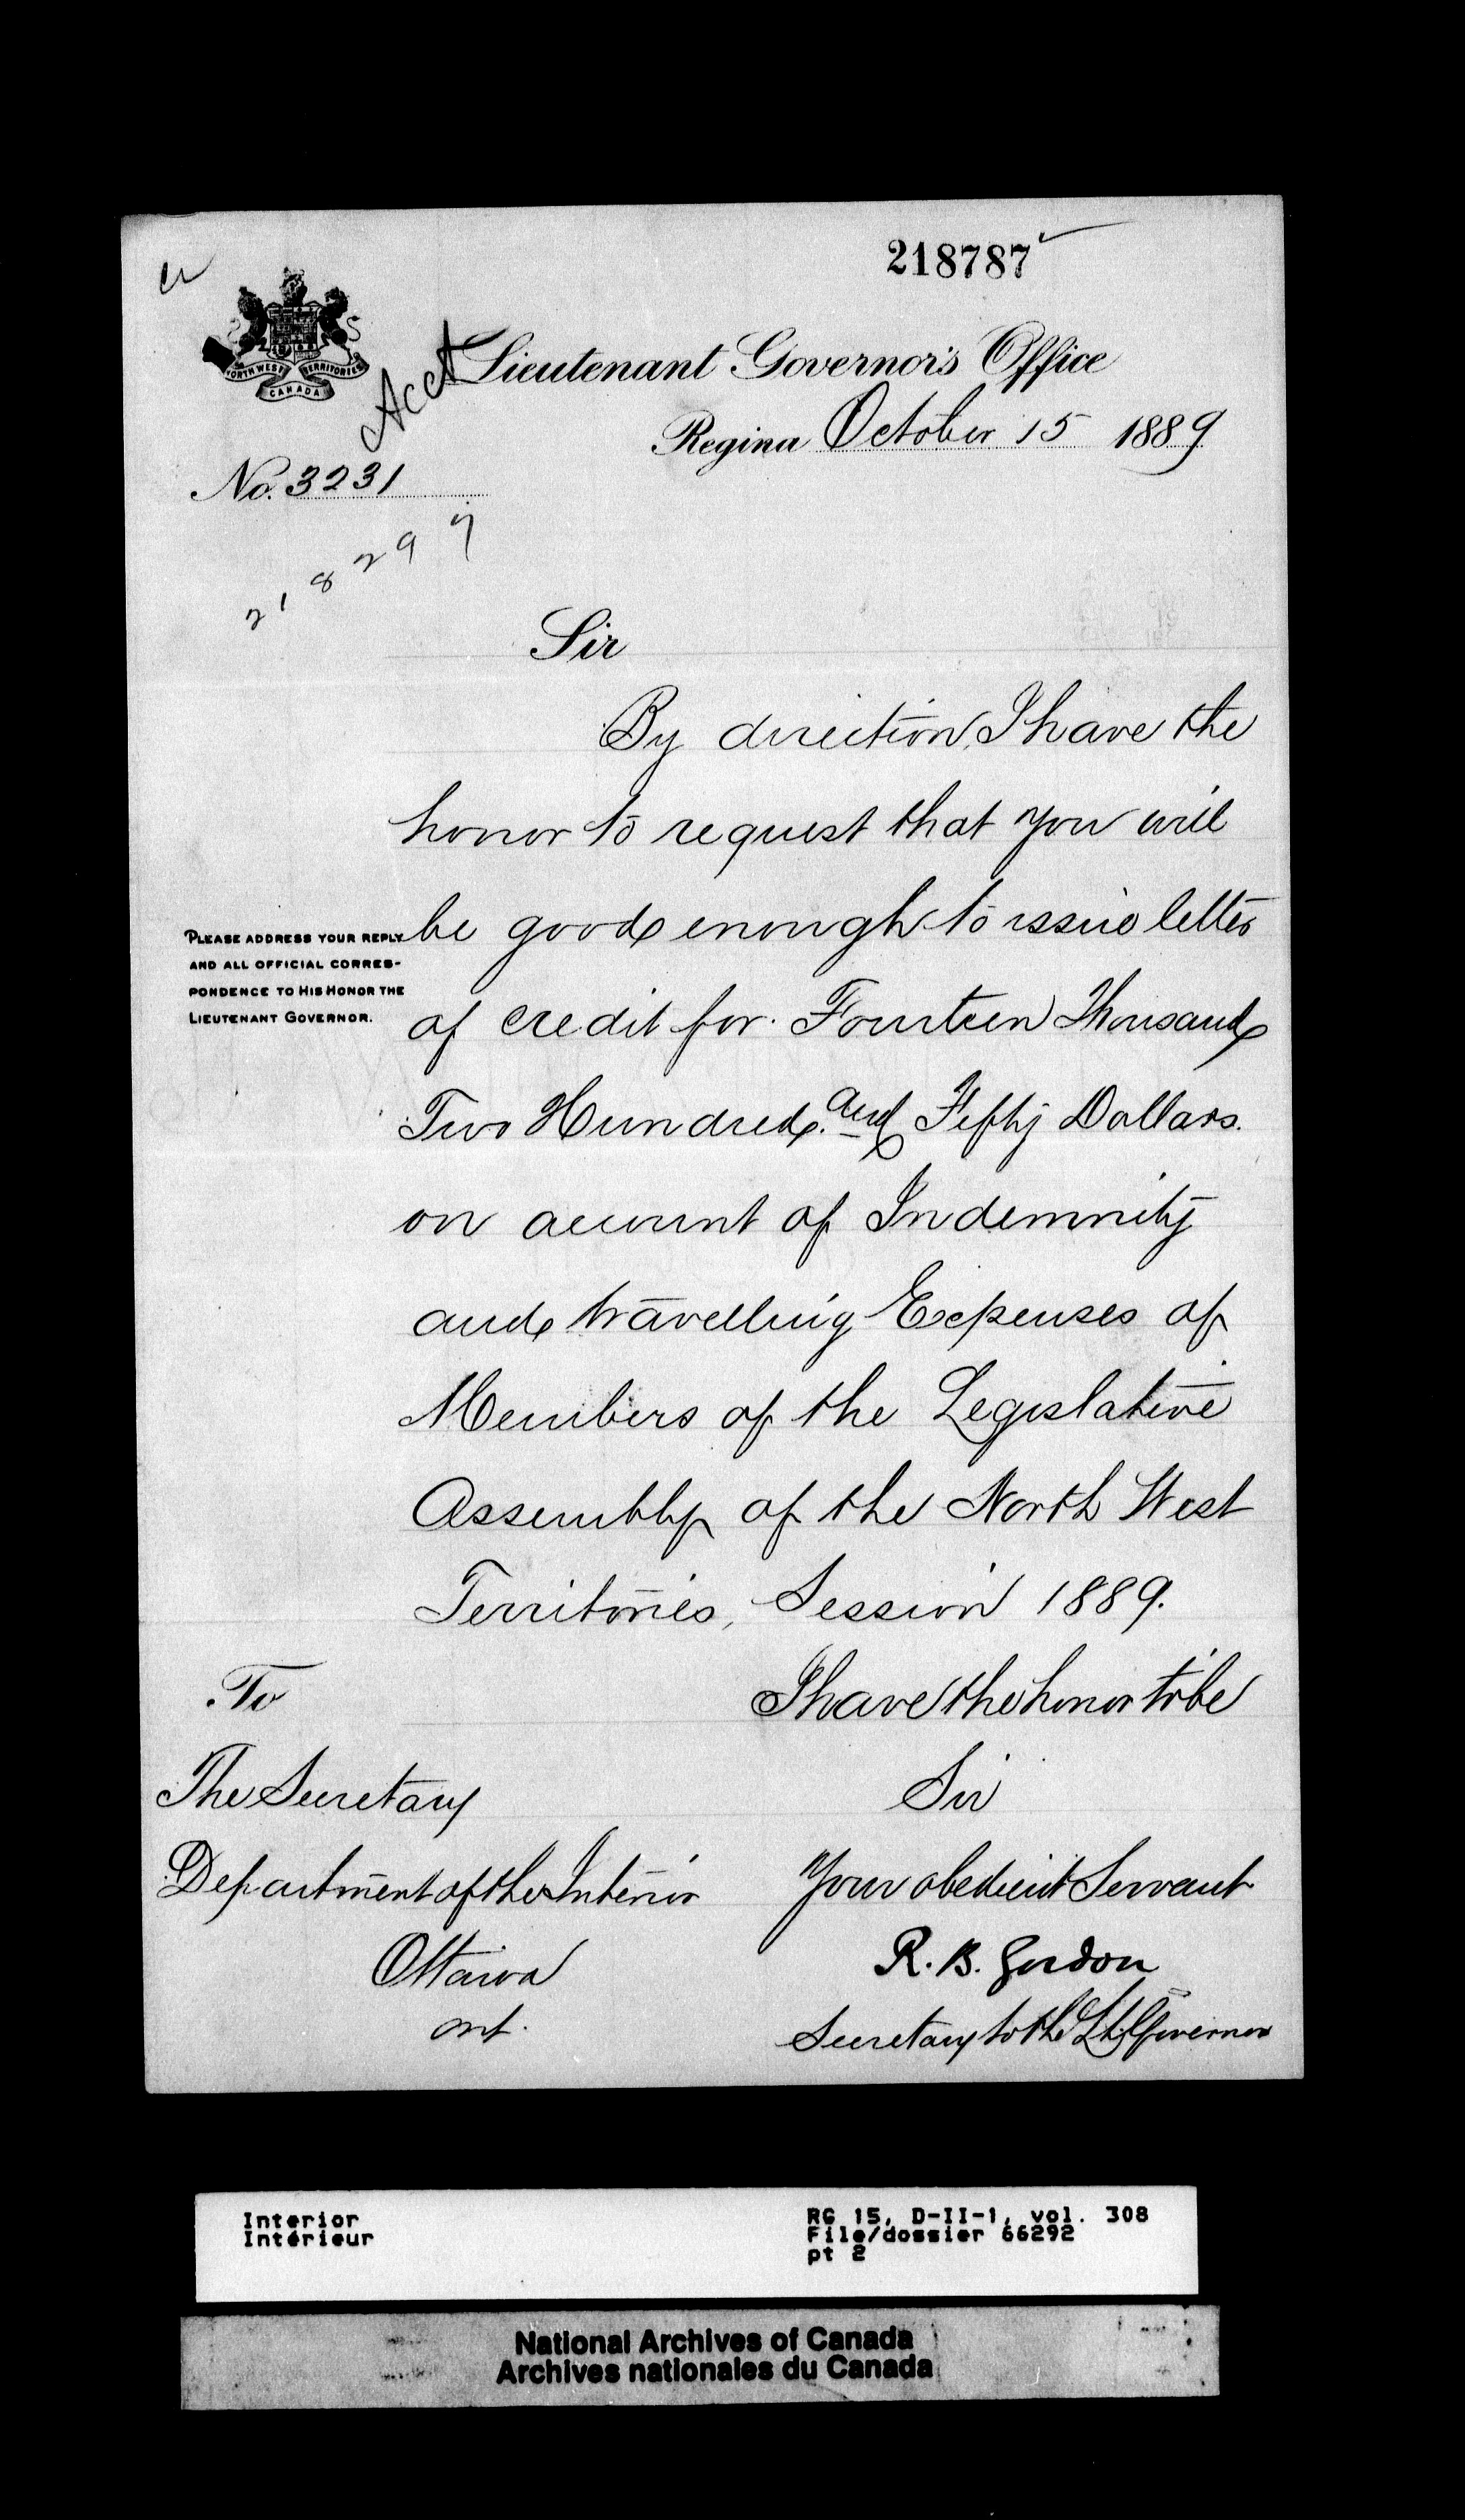 218787
NORTH WEST TERRITORIES
CANADA
Acct
Lieutenant Governor's Office
Regina October 15 1889
No. 3231
218297
Sir
By direction, I have the
honor to request that you will
be good enough to issue letter
PLEASE ADDRESS YOUR REPLY
AND ALL OFFICIAL CORRES-
PONDENCE TO HIS HONOR THE
LIEUTENANT GOVERNOR.
of credit for Fourteen Thousand
Two Hundred and Fifty Dollars.
on account of Indemnity
and travelling Expenses of
Members of the Legislative
Assembly of the North West
Territories, Session 1889.
I have the honor to be
Sir
Your obedient Servant
R. B. Gordon
Secretary to the Lt Governor
To
The Secretary
Department of the Interior
Ottawa
Ont.
Interior
Intérieur
RG 15, D-II-1, vol. 308
File/dossier 66292
pt 2
National Archives of Canada
Archives nationales du Canada